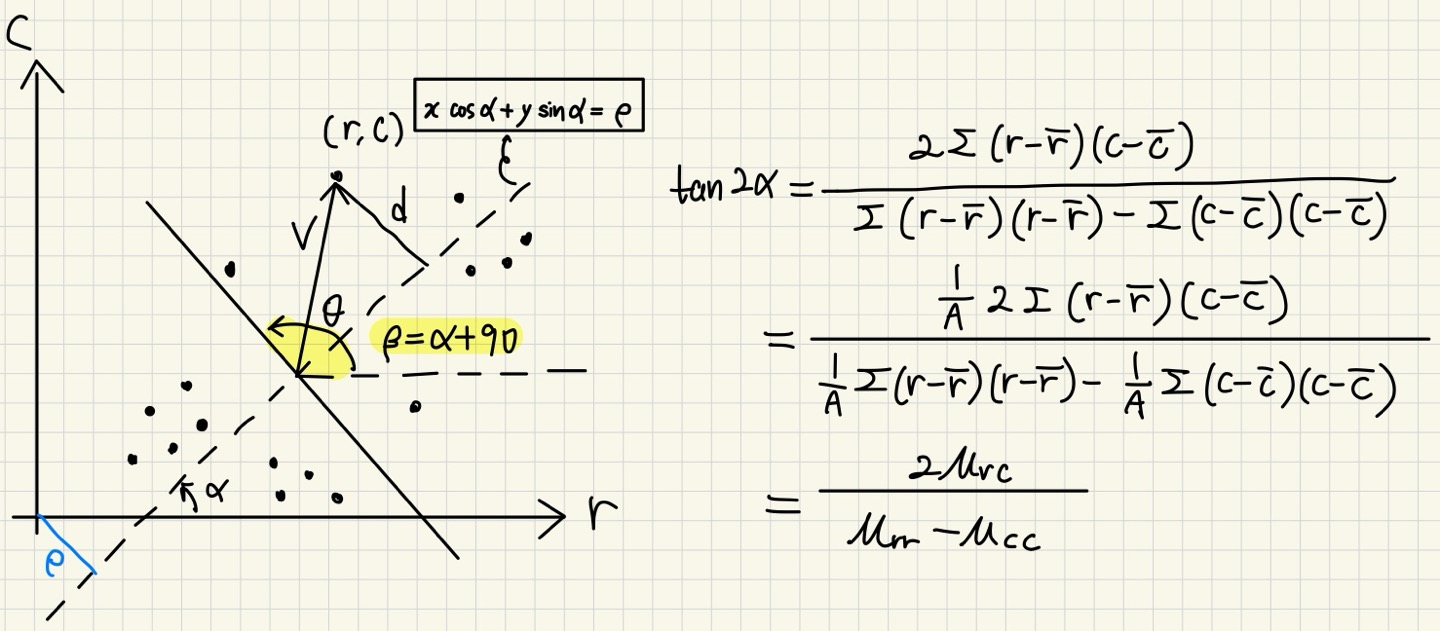 C
x cos α + y sin α = ρ
(r, c)
d
V
θ
β = α + 90
α
r
ρ
tan 2α = 2 Σ (r - r̅)(c - c̅) / Σ (r - r̅)(r - r̅) - Σ (c - c̅)(c - c̅)
= 1/A 2 Σ (r - r̅)(c - c̅) / 1/A Σ (r - r̅)(r - r̅) - 1/A Σ (c - c̅)(c - c̅)
= 2 μrc / μrr - μcc